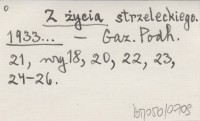 Z życia strzeleckiego.
1933... — Gaz. Podh.
21, nry 18, 20, 22, 23,
24-26.